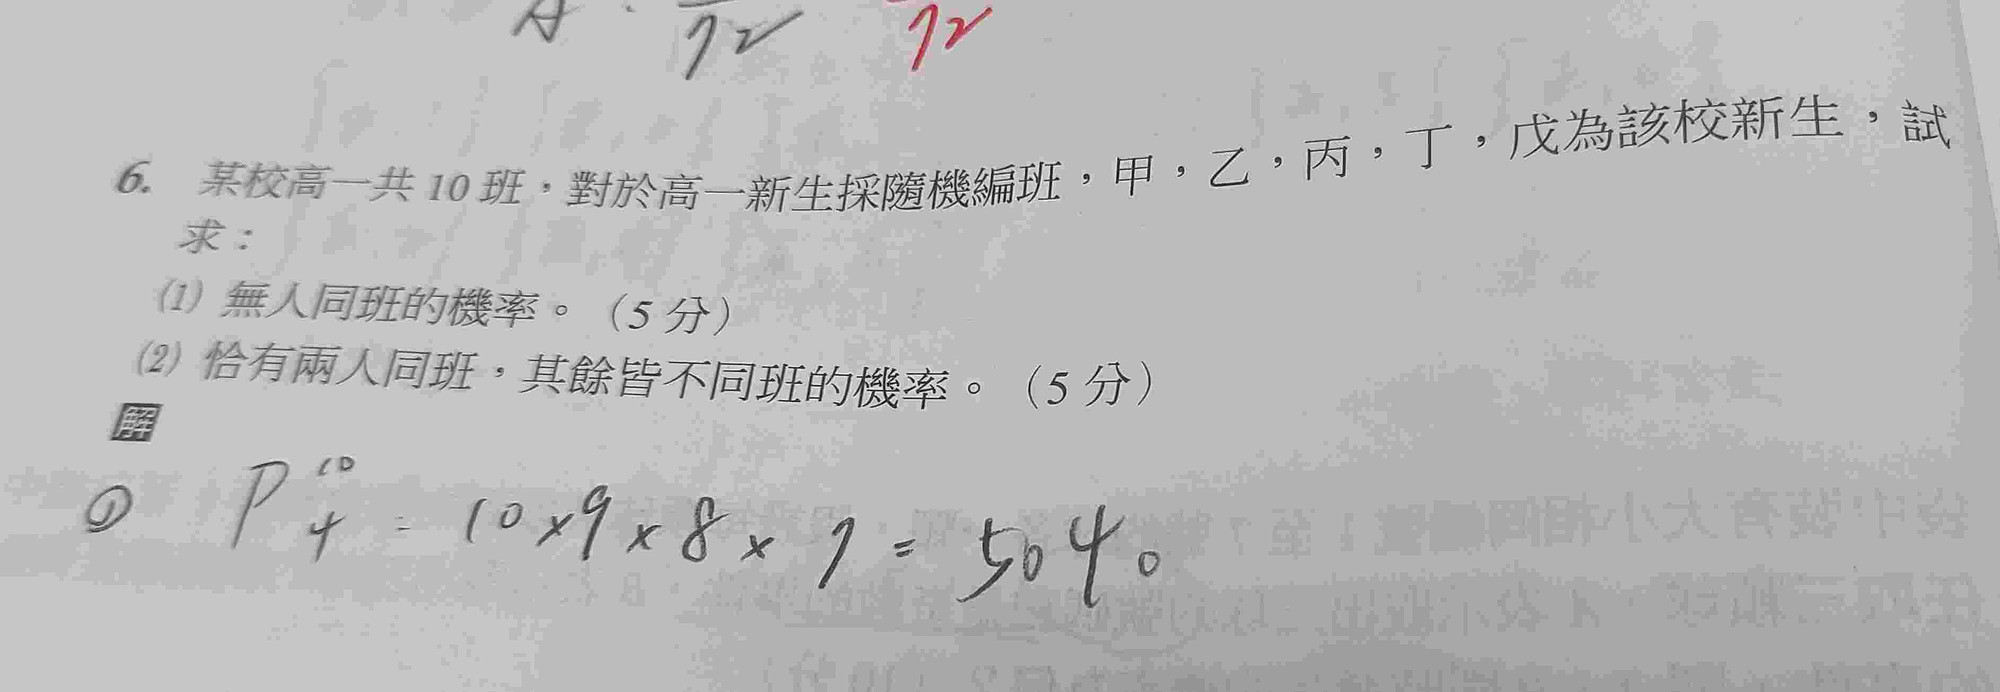 72 72
6. 某校高一共 10 班,對於高一新生採隨機編班,甲,乙,丙,丁,戊為該校新生,試
求:
(1) 無人同班的機率。(5 分)
(2) 恰有兩人同班,其餘皆不同班的機率。(5 分)
解
① P¹⁰₄ = 10×9×8×7=5040